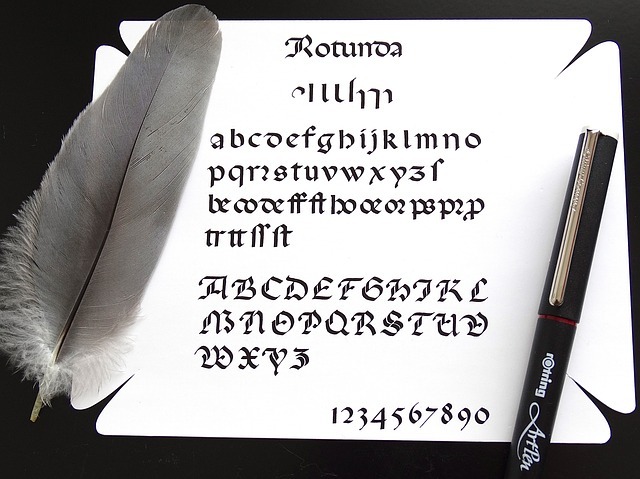 Rotunda
abcdefghijklmno
pqrrstuvwxyzſ
tr tt ſſ ſt
ABCDEFGHIKL
MNOPQRSTUV
WXYZ
1234567890
rotring ArtPen